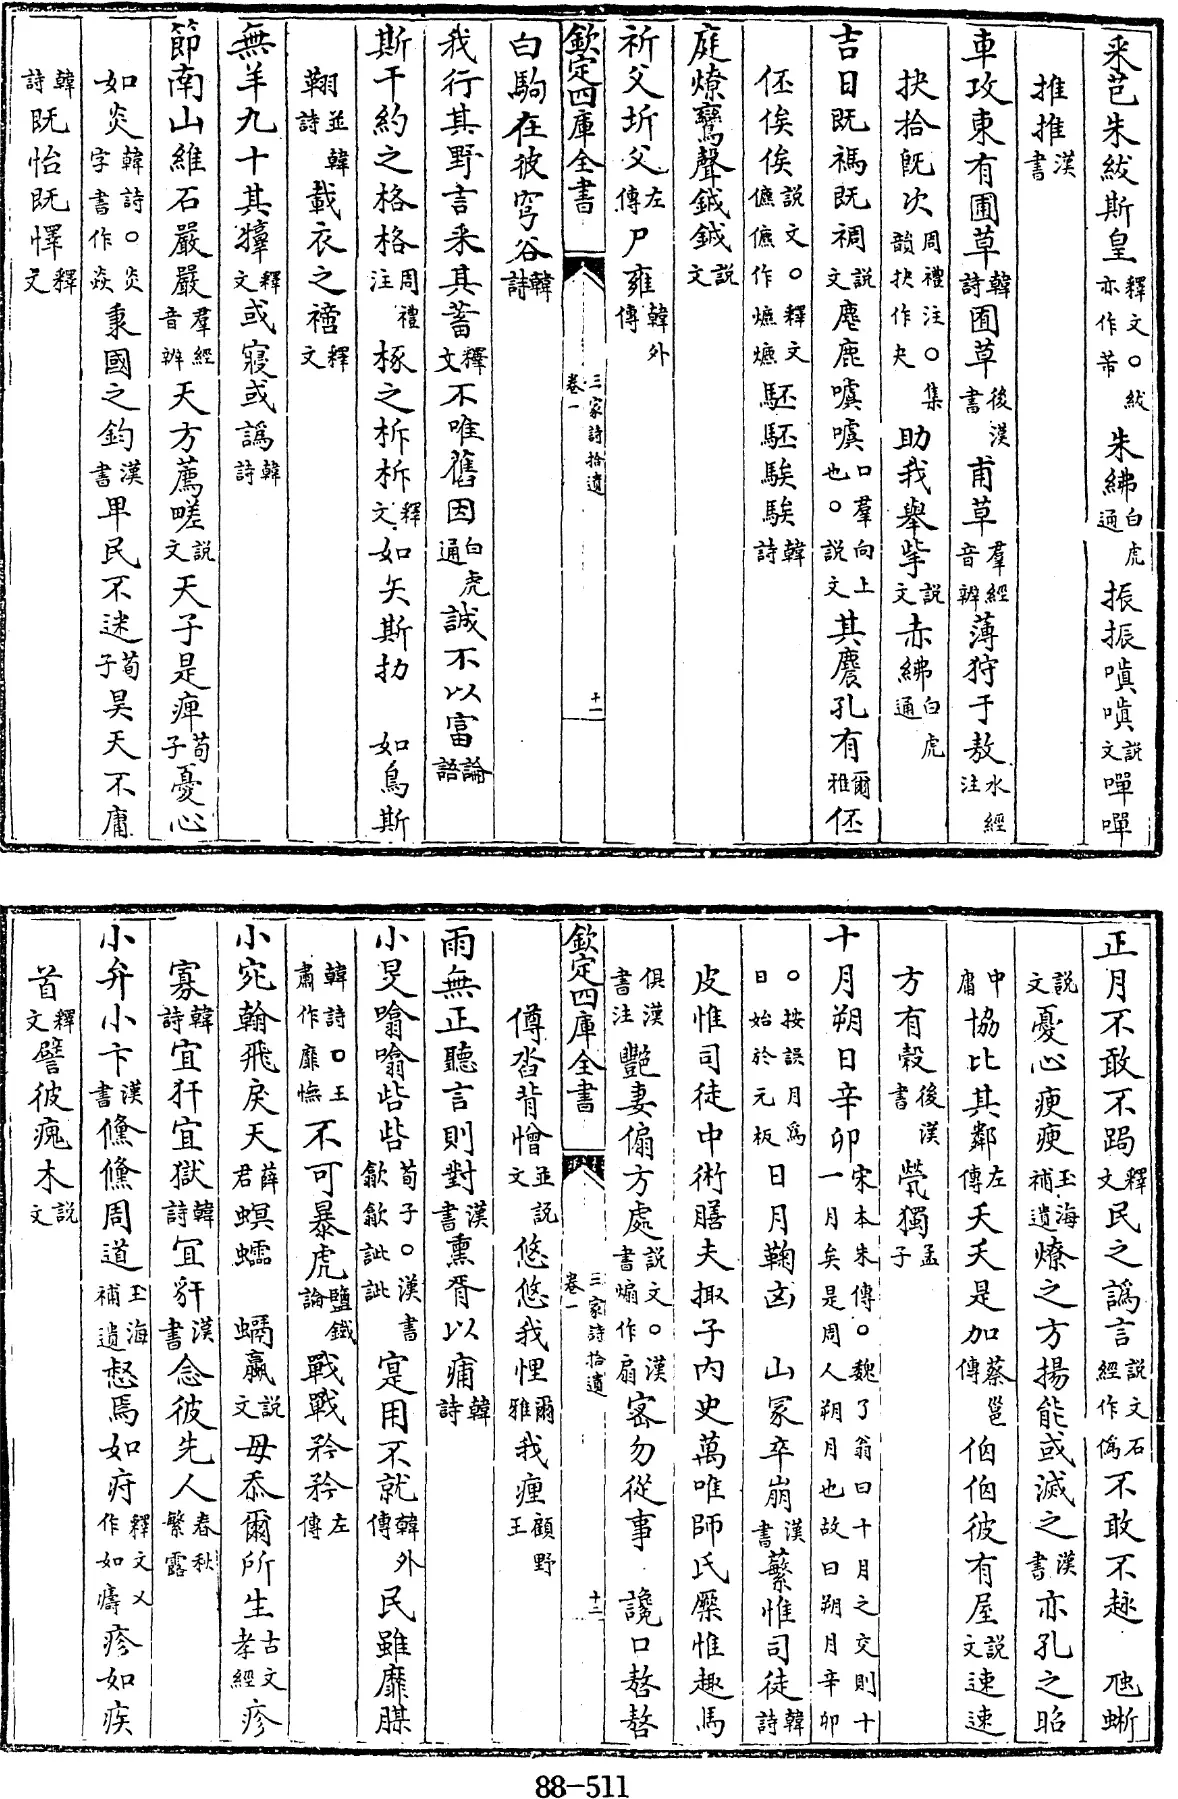 采芑朱紱斯皇釋文○紱亦作芾朱紼白虎通振振嗔嗔說文嘽嘽
推推漢書
車攻東有圃草韓詩囿草後漢書甫草羣經音辨薄狩于敖水經注
抉拾旣次周禮注○集韻抉作夬助我舉㧘說文赤紼白虎通
吉日旣禡旣禂說文麀鹿噳噳口羣向上也○說文其麎孔有爾雅伾
伾俟俟說文○釋文儦儦作爊爊駓駓騃騃韓詩
庭燎鸞聲鉞鉞說文
祈父圻父左傳尸雍韓外傳
欽定四庫全書
三家詩拾遺
卷一
十一
白駒在彼穹谷韓詩
我行其野言采其蓄釋文不唯舊因白虎通誠不以富論語
斯干約之格格周禮注椓之柝柝釋文如矢斯朸 如鳥斯
翱並韓詩載衣之禘釋文
無羊九十其犉釋文或寢或譌韓詩
節南山維石嚴嚴羣經音辨天方薦嗟說文天子是庳荀子憂心
如炎韓詩○炎字書作焱秉國之鈞漢書卑民不迷荀子昊天不庸
韓詩旣怡旣懌釋文
正月不敢不跼釋文民之譌言說文石經作偽不敢不趚 虺蜥
說文憂心瘐瘐玉海補遺燎之方揚能或滅之漢書亦孔之昭
中庸協比其鄰左傳夭夭是加蔡邕傳佰佰彼有屋說文速速
方有穀後漢書煢獨孟子
十月朔日辛卯宋本朱傳○魏了翁曰十月之交則十一月矣是周人朔月也故曰朔月辛卯
○按誤月爲日始於元板日月鞠凶 山冢卒崩漢書蘩惟司徒韓詩
皮惟司徒中術膳夫掫子內史萬唯師氏檿惟趣馬
俱漢書注豔妻傓方處說文○漢書煽作扇密勿從事 讒口嗸嗸
欽定四庫全書
三家詩拾遺
卷一
十二
僔沓背憎並說文悠悠我悝爾雅我瘇顧野王
雨無正聽言則對漢書熏胥以痡韓詩
小旻噏噏呰呰荀子○漢書歙歙訿訿寔用不就韓外傳民雖靡腜
韓詩○王肅作靡憮不可暴虎鹽鐵論戰戰矜矜左傳
小宛翰飛戾天薛君螟蠕 蠣蠃說文毋忝爾所生古文孝經疹
寡韓詩宜犴宜獄韓詩宜豻漢書念彼先人春秋繁露
小弁小卞漢書儵儵周道玉海補遺惄焉如疛釋文乂作如㿒疹如疾
首釋文譬彼瘣木說文
88-511